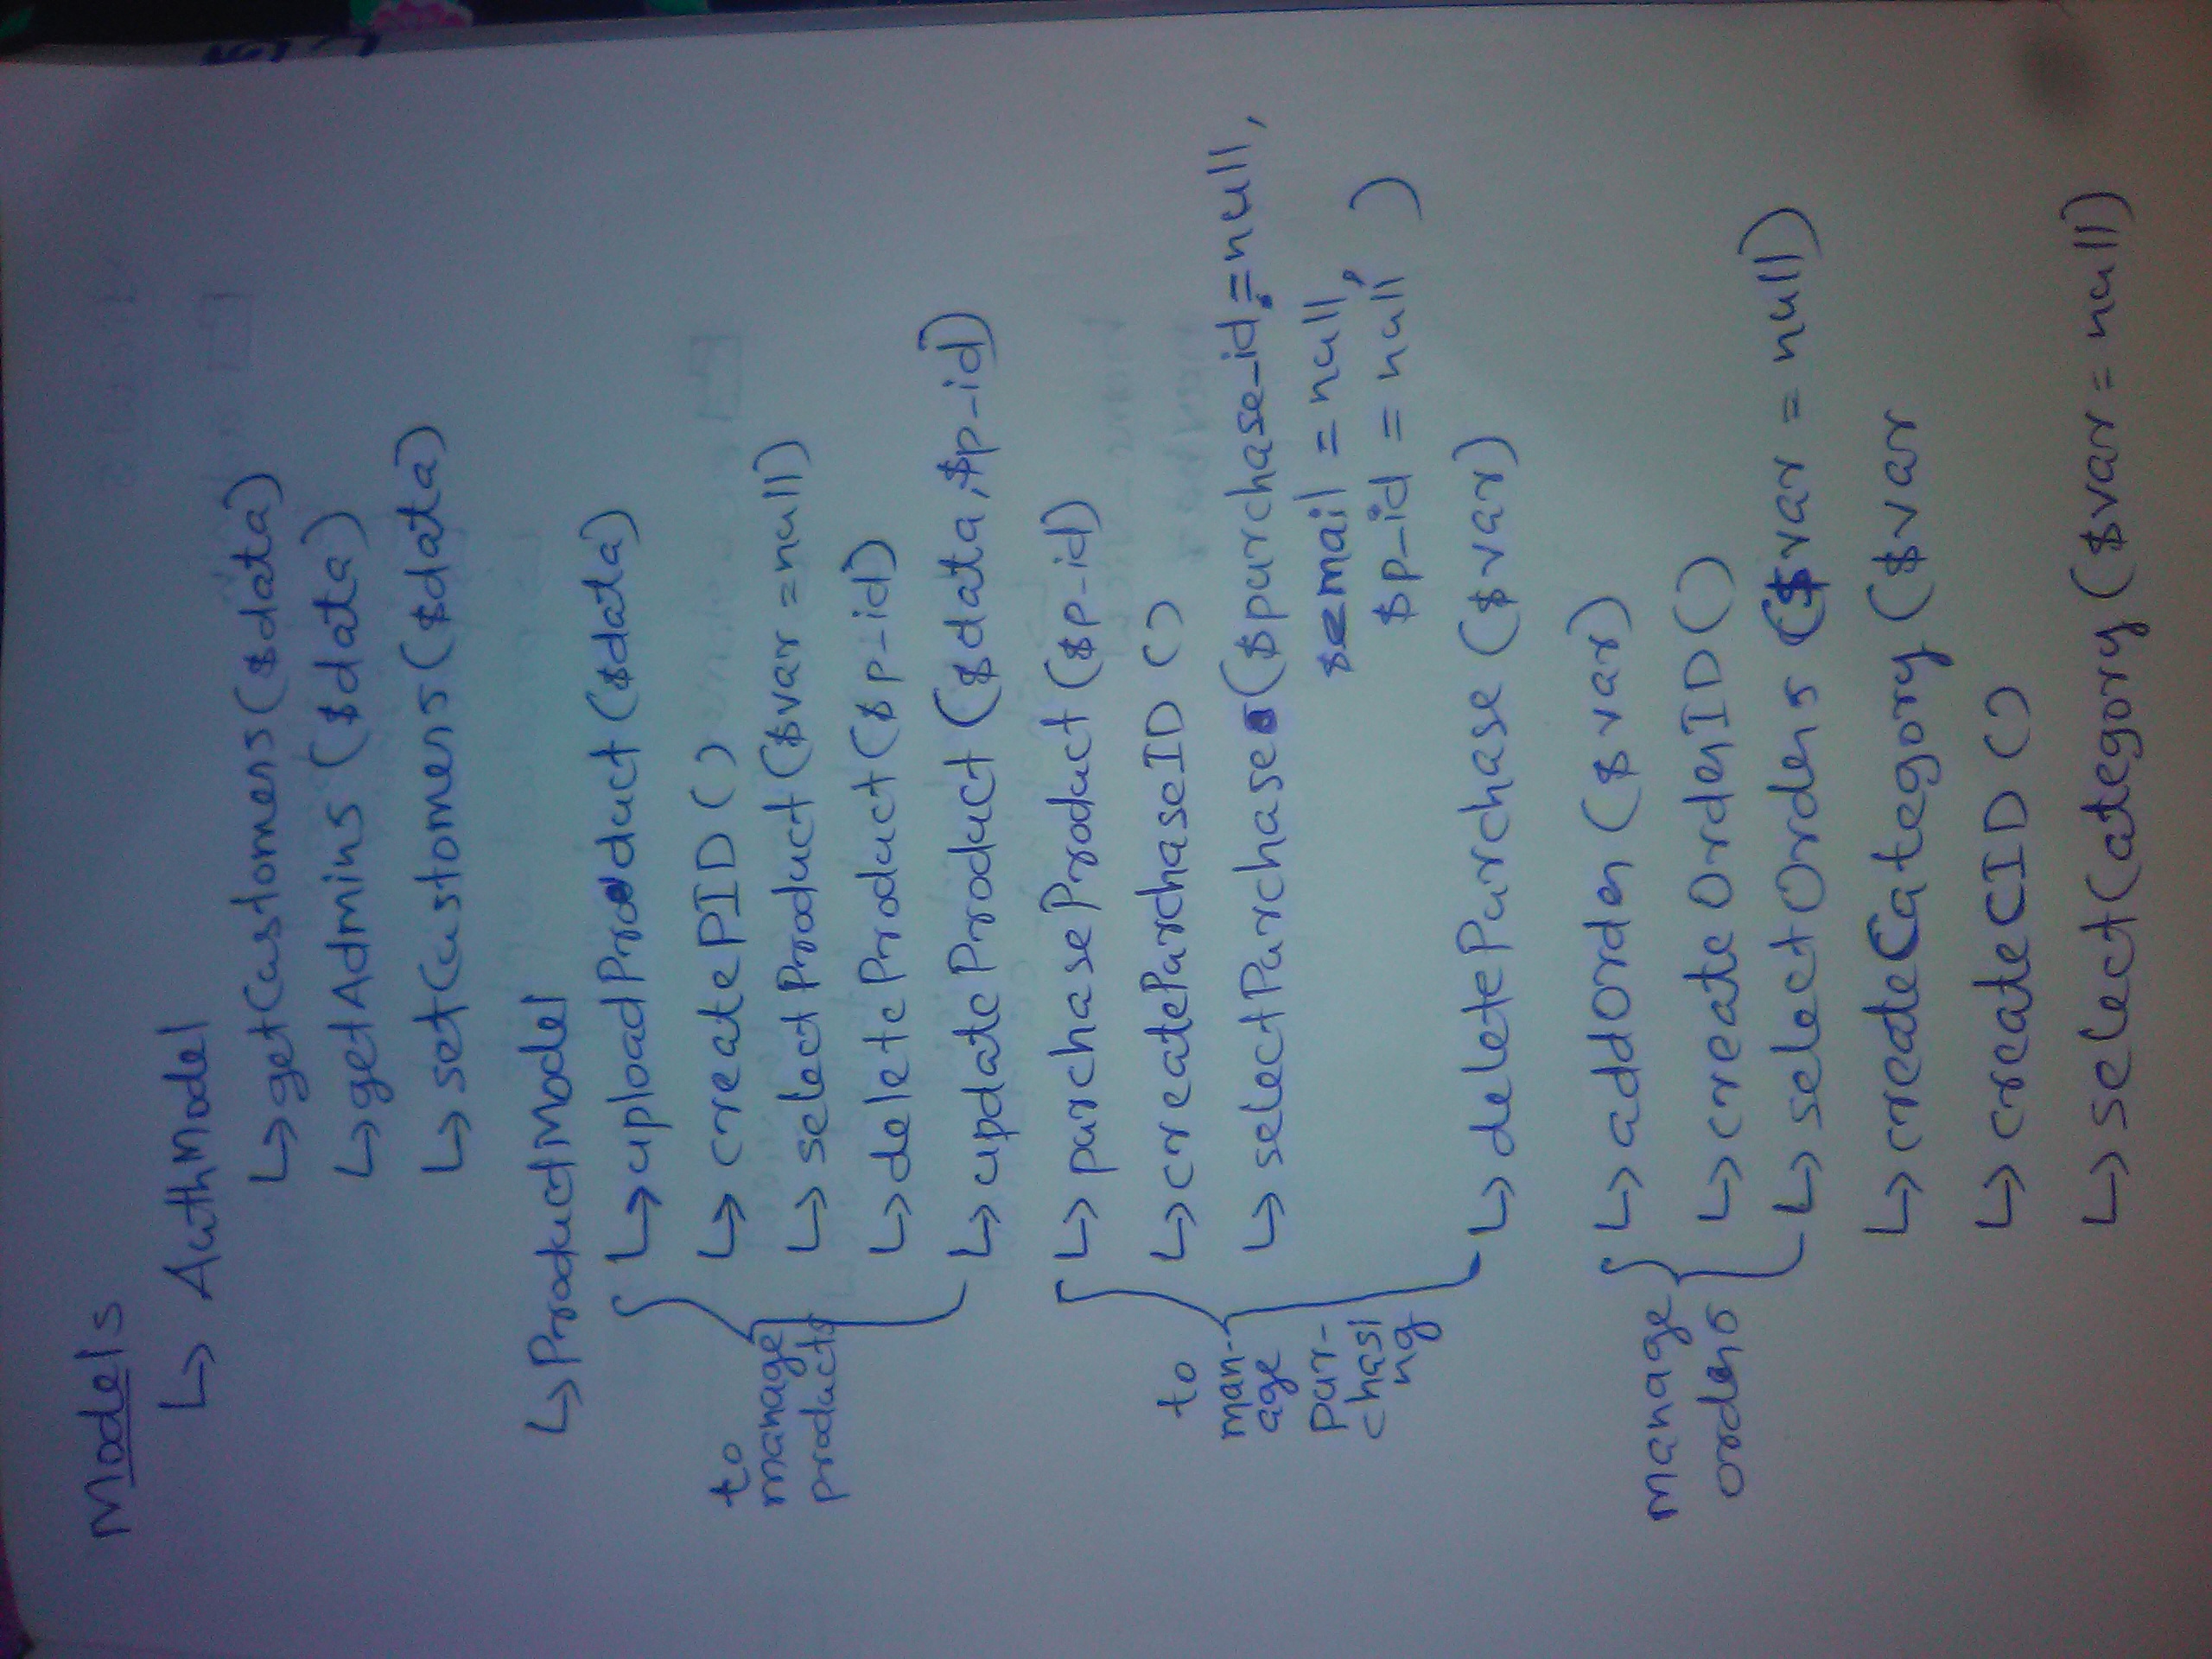 Models
↳ AuthModel
↳ getCustomers($data)
↳ getAdmins ($data)
↳ setCustomers($data)
↳ ProductModel
to manage products
↳ uploadProduct($data)
↳ createPID()
↳ selectProduct($var = null)
↳ deleteProduct($p-id)
↳ updateProduct($data,$p-id)
to man-age pur-chasi ng
↳ purchaseProduct($p-id)
↳ createPurchaseID()
↳ selectPurchase($purchase-id=null,
$email = null,
$p-id = null)
↳ deletePurchase($var)
manage orders
↳ addOrder($var)
↳ createOrderID()
↳ selectOrders($var = null)
↳ createCategory($var
↳ createCID()
↳ selectCategory($var = null)